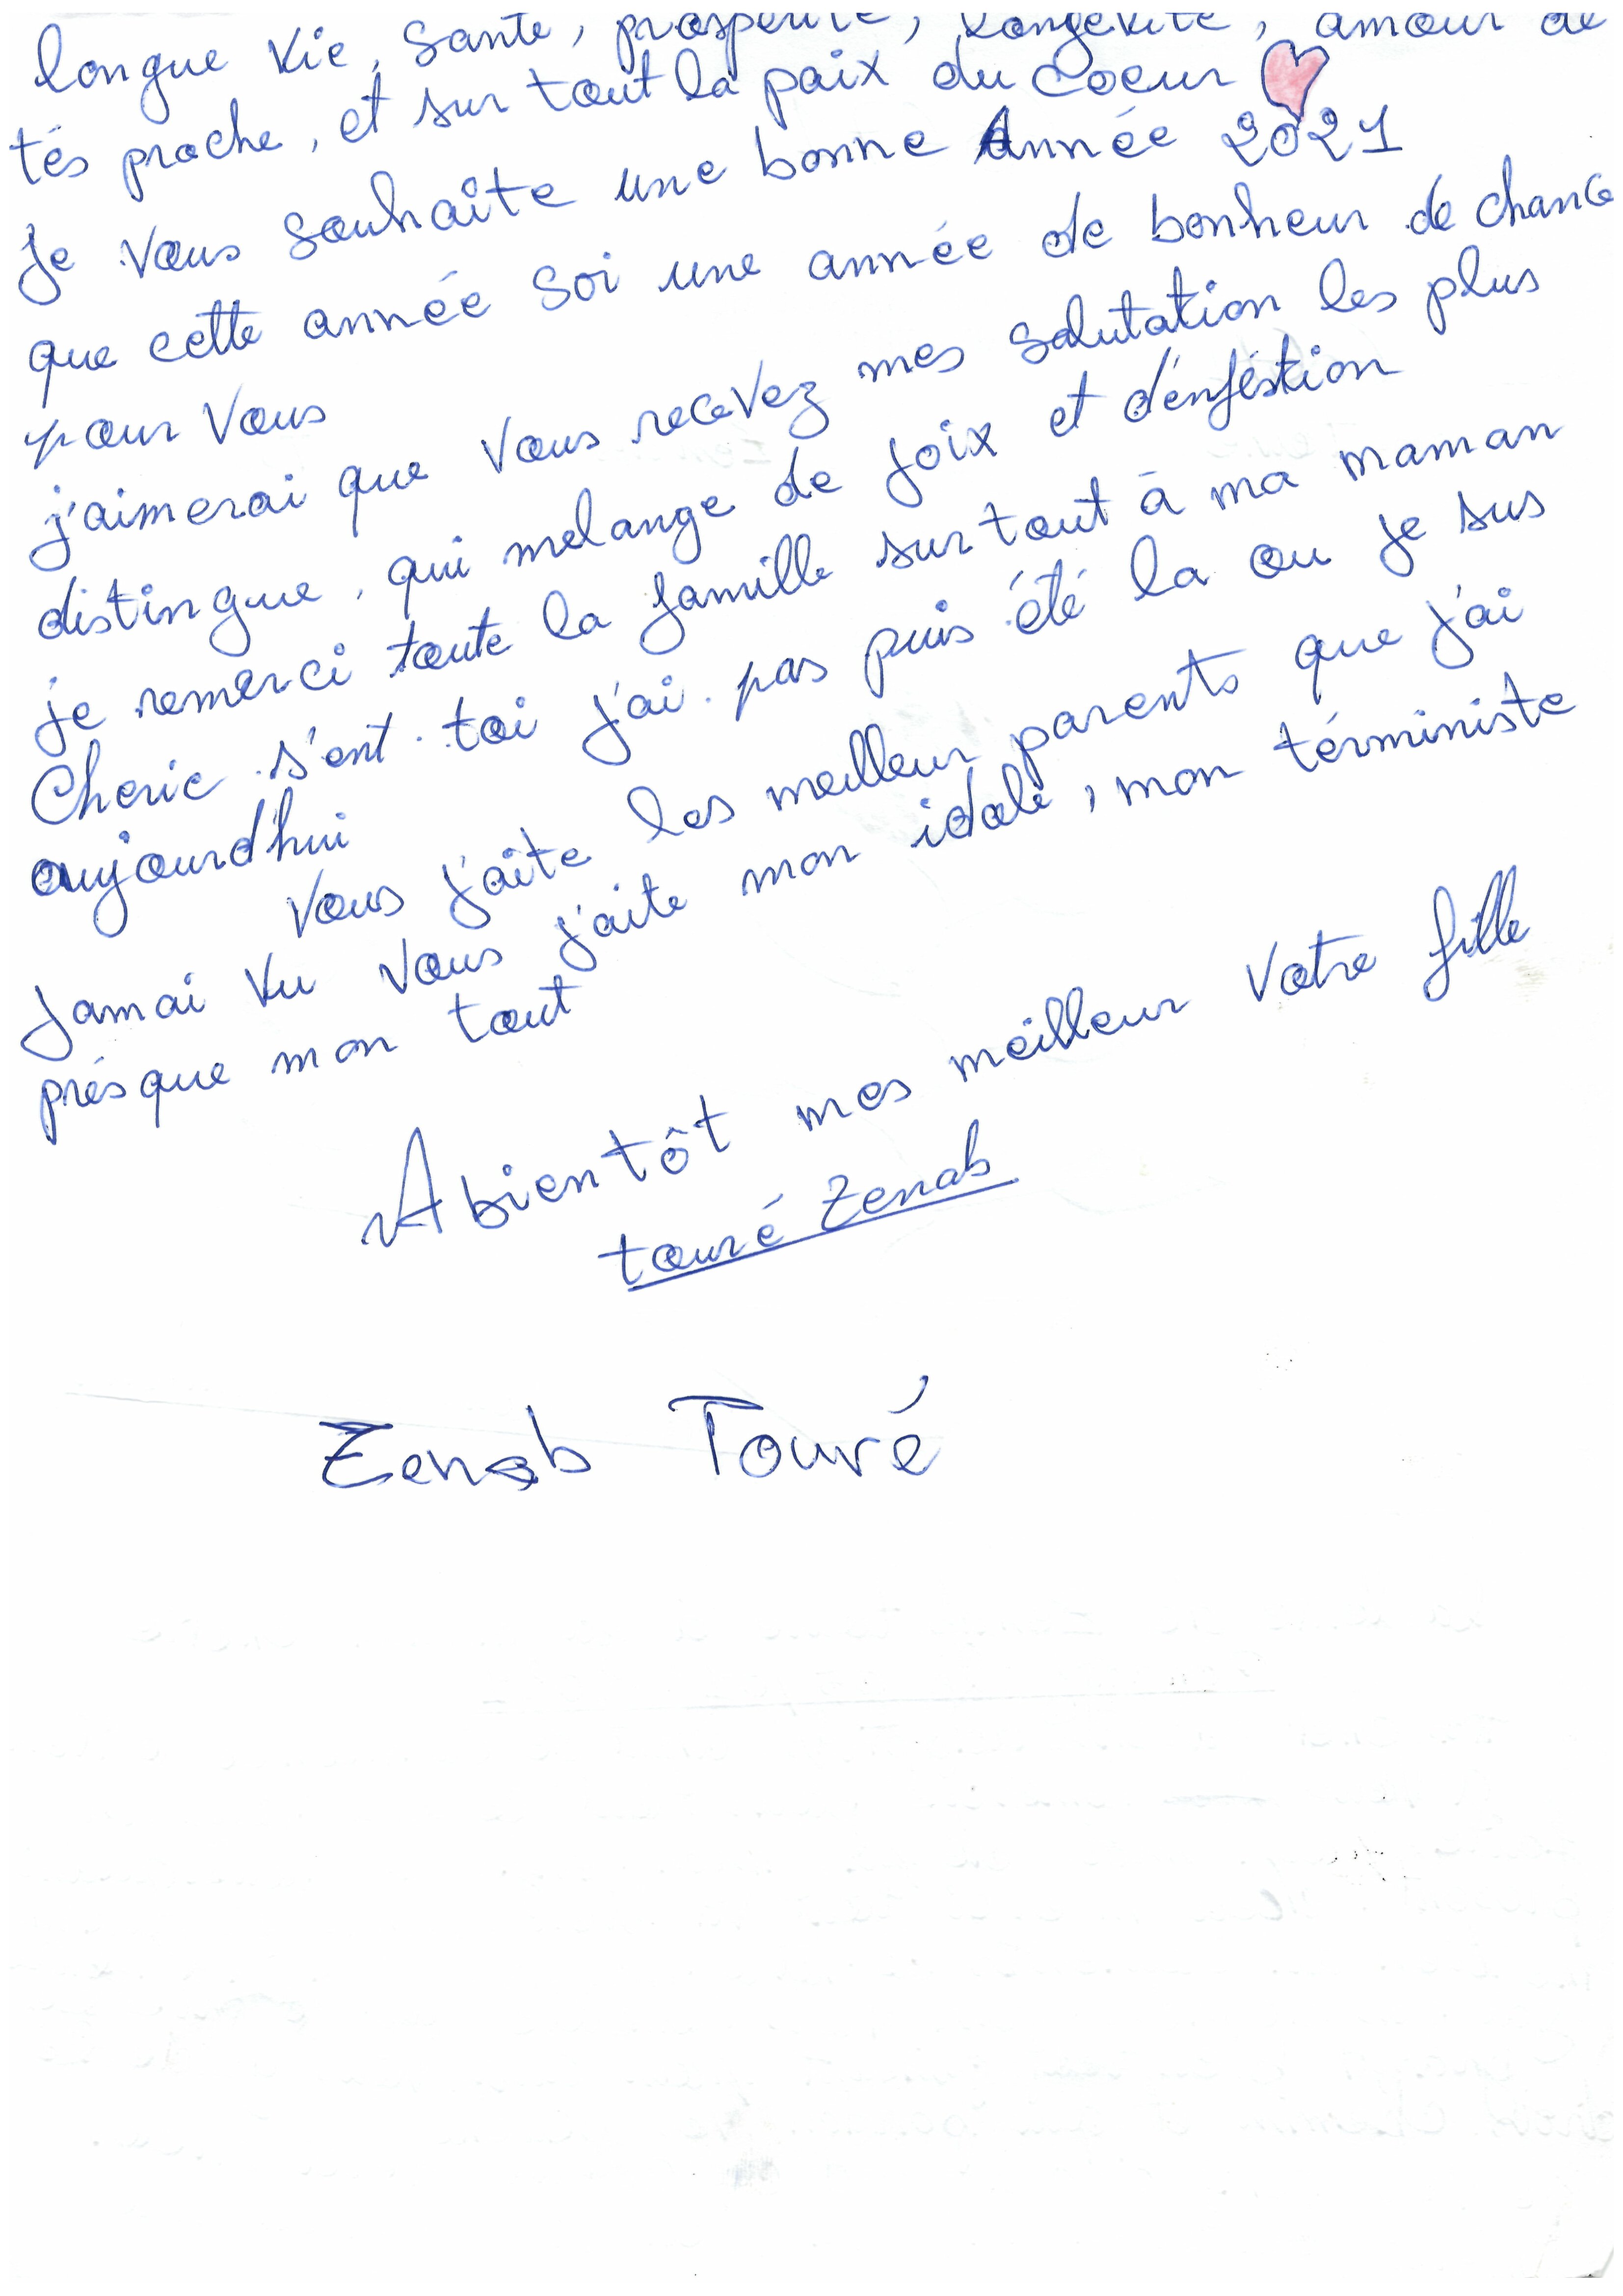 longue vie, Santé, prosperité, Longevité, amour de
tés proche, et sur tout la paix du coeur
je vous souhaite une bonne Année 2021
que cette année soi une année de bonheur de chance
pour vous
j'aimerai que vous recevez mes salutation les plus
distingue, qui melange de joix et d'énféstion
je remerci toute la famille surtout à ma maman
Cherie s'ent toi j'ai pas puis été la ou je sus
aujourd'hui
vous j'aite les meilleur parents que j'ai
Jamai vu vous j'aite mon idole, mon térministe
présque mon tout
Abientôt mes meilleur votre fille
touré Zenab
Zenab Touré